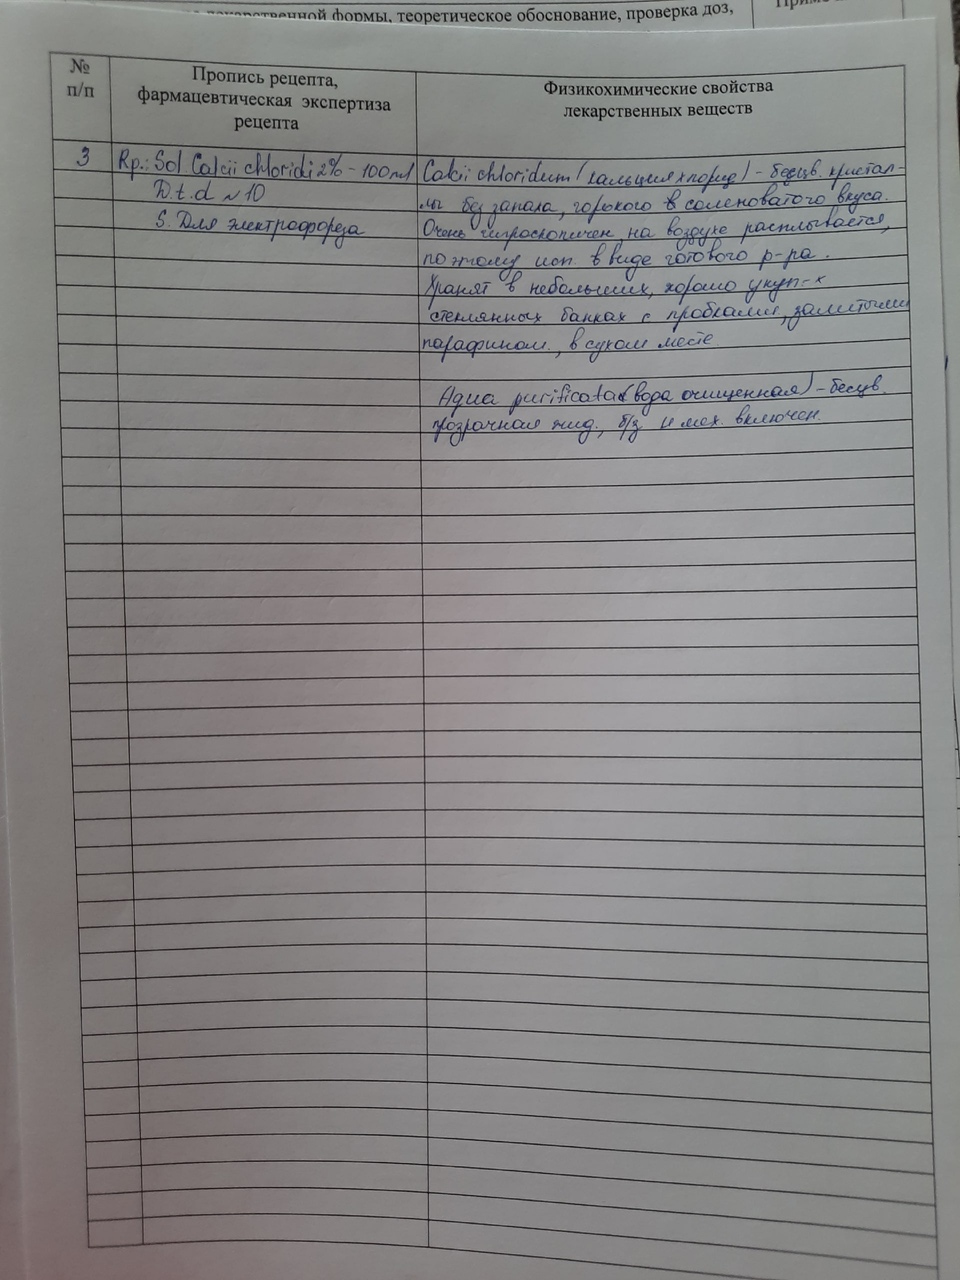 лекарственной формы, теоретическое обоснование, проверка доз,
№ п/п
Пропись рецепта, фармацевтическая экспертиза рецепта
Физикохимические свойства лекарственных веществ
3
Rp.: Sol Calcii chloridi 2% - 100 ml
D.t.d N 10
S. Для электрофореза
Calcii chloridum (кальция хлорид) - бесцв. кристал-
лы без запаха, горького соленоватого вкуса.
Очень гигроскопичен, на воздухе расплывается,
поэтому исп. в виде готового р-ра.
Хранят в небольших, хорошо укуп-х
стеклянных банках с пробками, залитыми
парафином., в сухом месте
Aqua purificata (вода очищенная) - бесцв.
прозрачная жид., б/з и мех. включен.